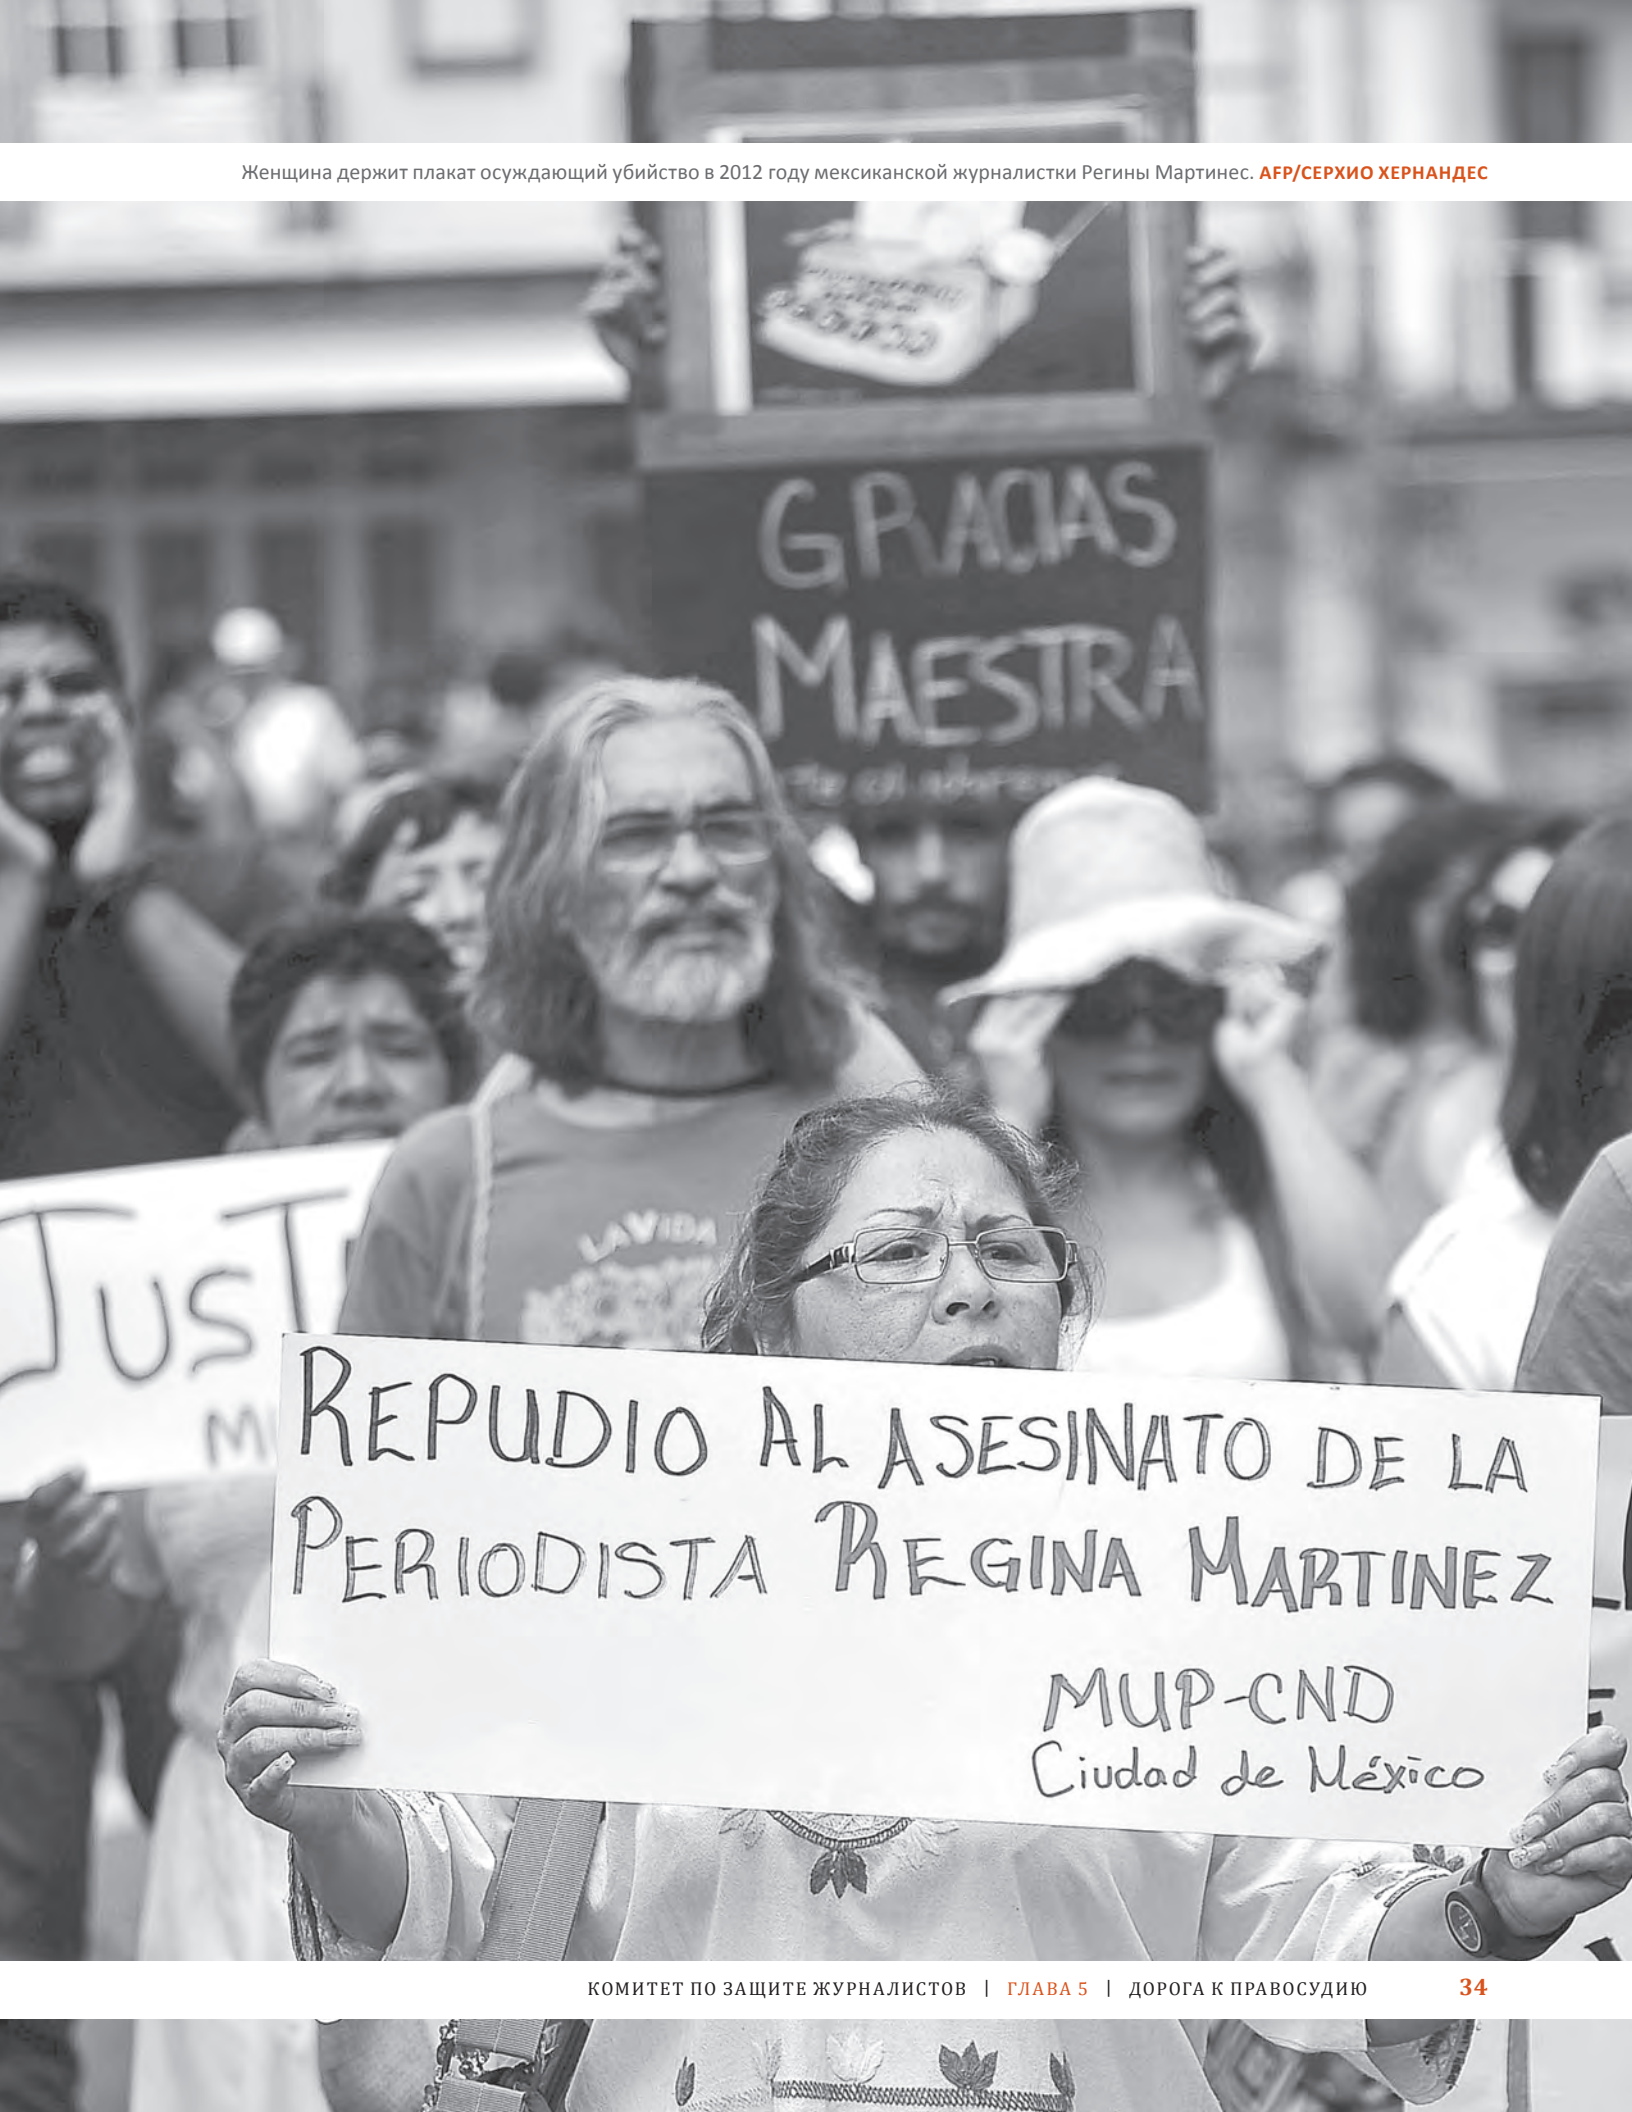 Женщина держит плакат осуждающий убийство в 2012 году мексиканской журналистки Регины Мартинес. AFP/СЕРХИО ХЕРНАНДЕС
GRACIAS
MAESTRA
LA VIDA
JUST
REPUDIO AL ASESINATO DE LA
PERIODISTA REGINA MARTINEZ
MUP-CND
Ciudad de México
КОМИТЕТ ПО ЗАЩИТЕ ЖУРНАЛИСТОВ | ГЛАВА 5 | ДОРОГА К ПРАВОСУДИЮ 34